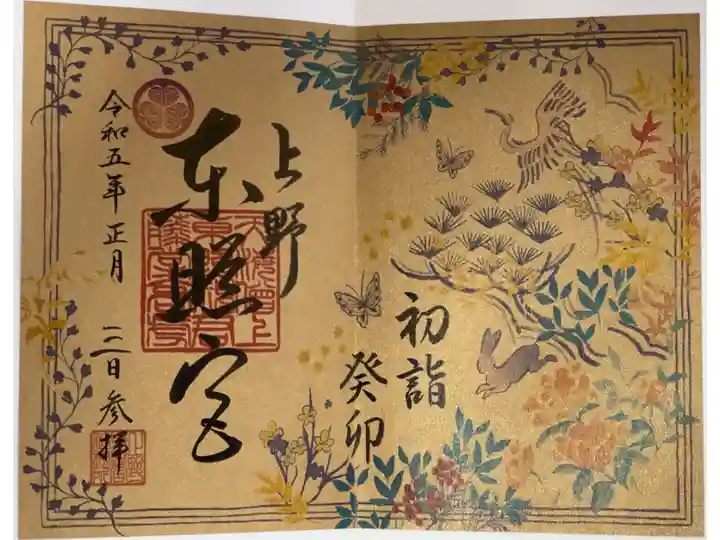 初詣
癸卯
上野
東照宮
令和五年 正月 日 参拝